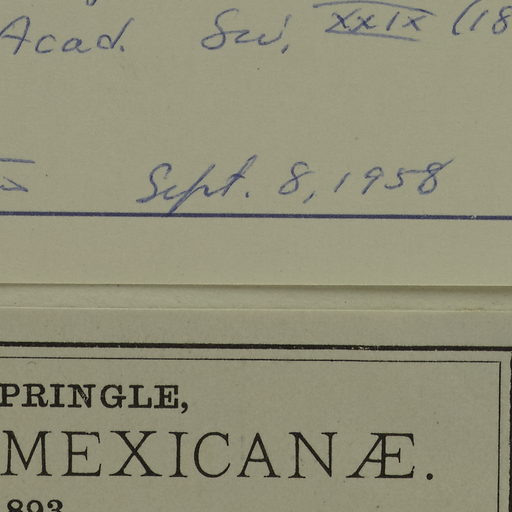 Acad. Sci, XXIX (18
Sept. 8, 1958
PRINGLE,
MEXICANÆ.
893